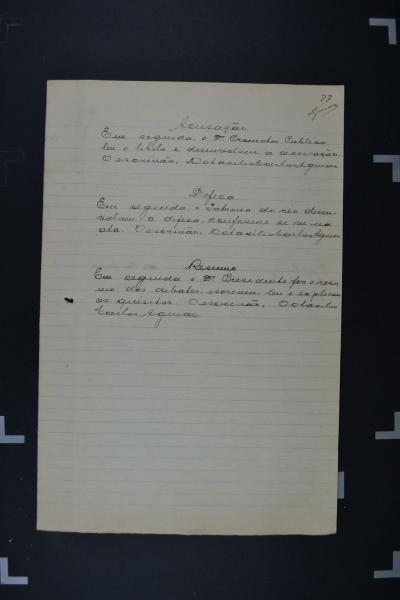 77
Acusação
Em seguida, o Dr Promotor Publico
leu o libelo e desenvolveu a acusação.
O escrivão, Octacilio Carlos Aguiar
Defesa
Em seguida, o Patrono do réo desen-
volveu a defesa, conforme se vê na
ata. O escrivão, Octacilio Carlos Aguiar
Resumo
Em seguida o Dr Presidente fez o resu-
mo dos debates, escreveu, leu e explicou
os quisitos. O escrivão, Octacilio
Carlos Aguiar